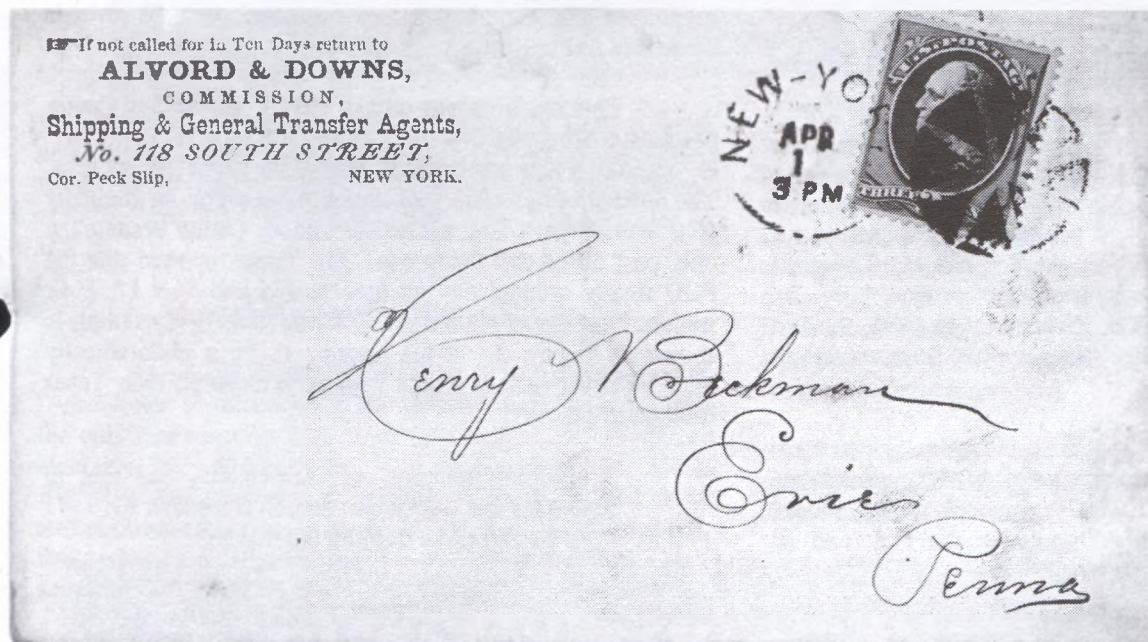 If not called for in Ten Days return to
ALVORD & DOWNS,
COMMISSION,
Shipping & General Transfer Agents,
No. 118 SOUTH STREET,
Cor. Peck Slip, NEW YORK.
NEW-YO
APR
1
3 PM
U.S. POSTAGE
THREE
Henry Beckman
Erie
Penna